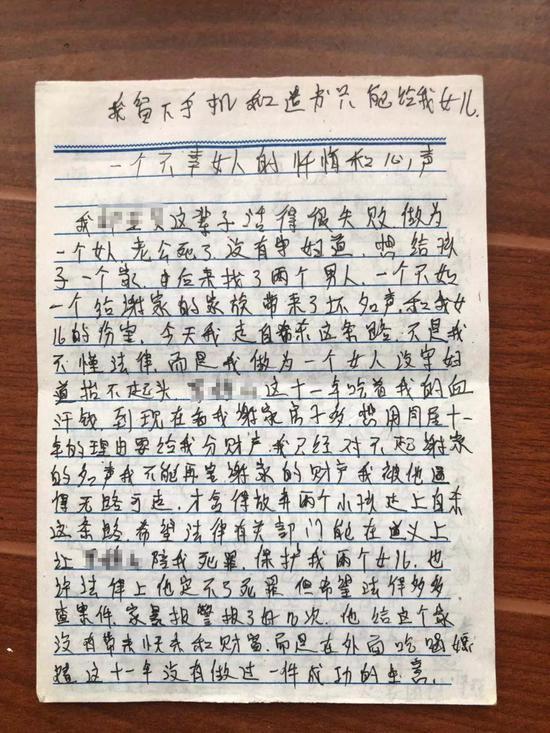 我留下手机和遗书只能给我女儿.
一个不幸女人的忏悔和心声
我 这辈子活得很失败做为
一个女人,老公死了,没有守妇道,想给孩
子一个家,后来找了两个男人,一个不如
一个给谢家的家族带来了坏名声,和我女
儿的伤害,今天我走自杀这条路,不是我
不懂法律,而是我做为一个女人没守妇
道抬不起头, 这十一年吃着我的血
汗钱,到现在 我谢家房子多,想用同居十一
年的理由要给我分财产,我已经对不起谢家
的名声我不能再害谢家的财产我被他逼
得无路可走,才舍得放弃两个小孩走上自杀
这条路,希望法律有关部门能在道义上
让 陪我死罪,保护我两个女儿,也
许法律上他定不了死罪,但希望法律多多
查案件,家暴报警报了好几次,他给这个家
没有带来快乐和财富,而是在外面吃喝嫖
赌,这十一年没有做过一件成功的生意,